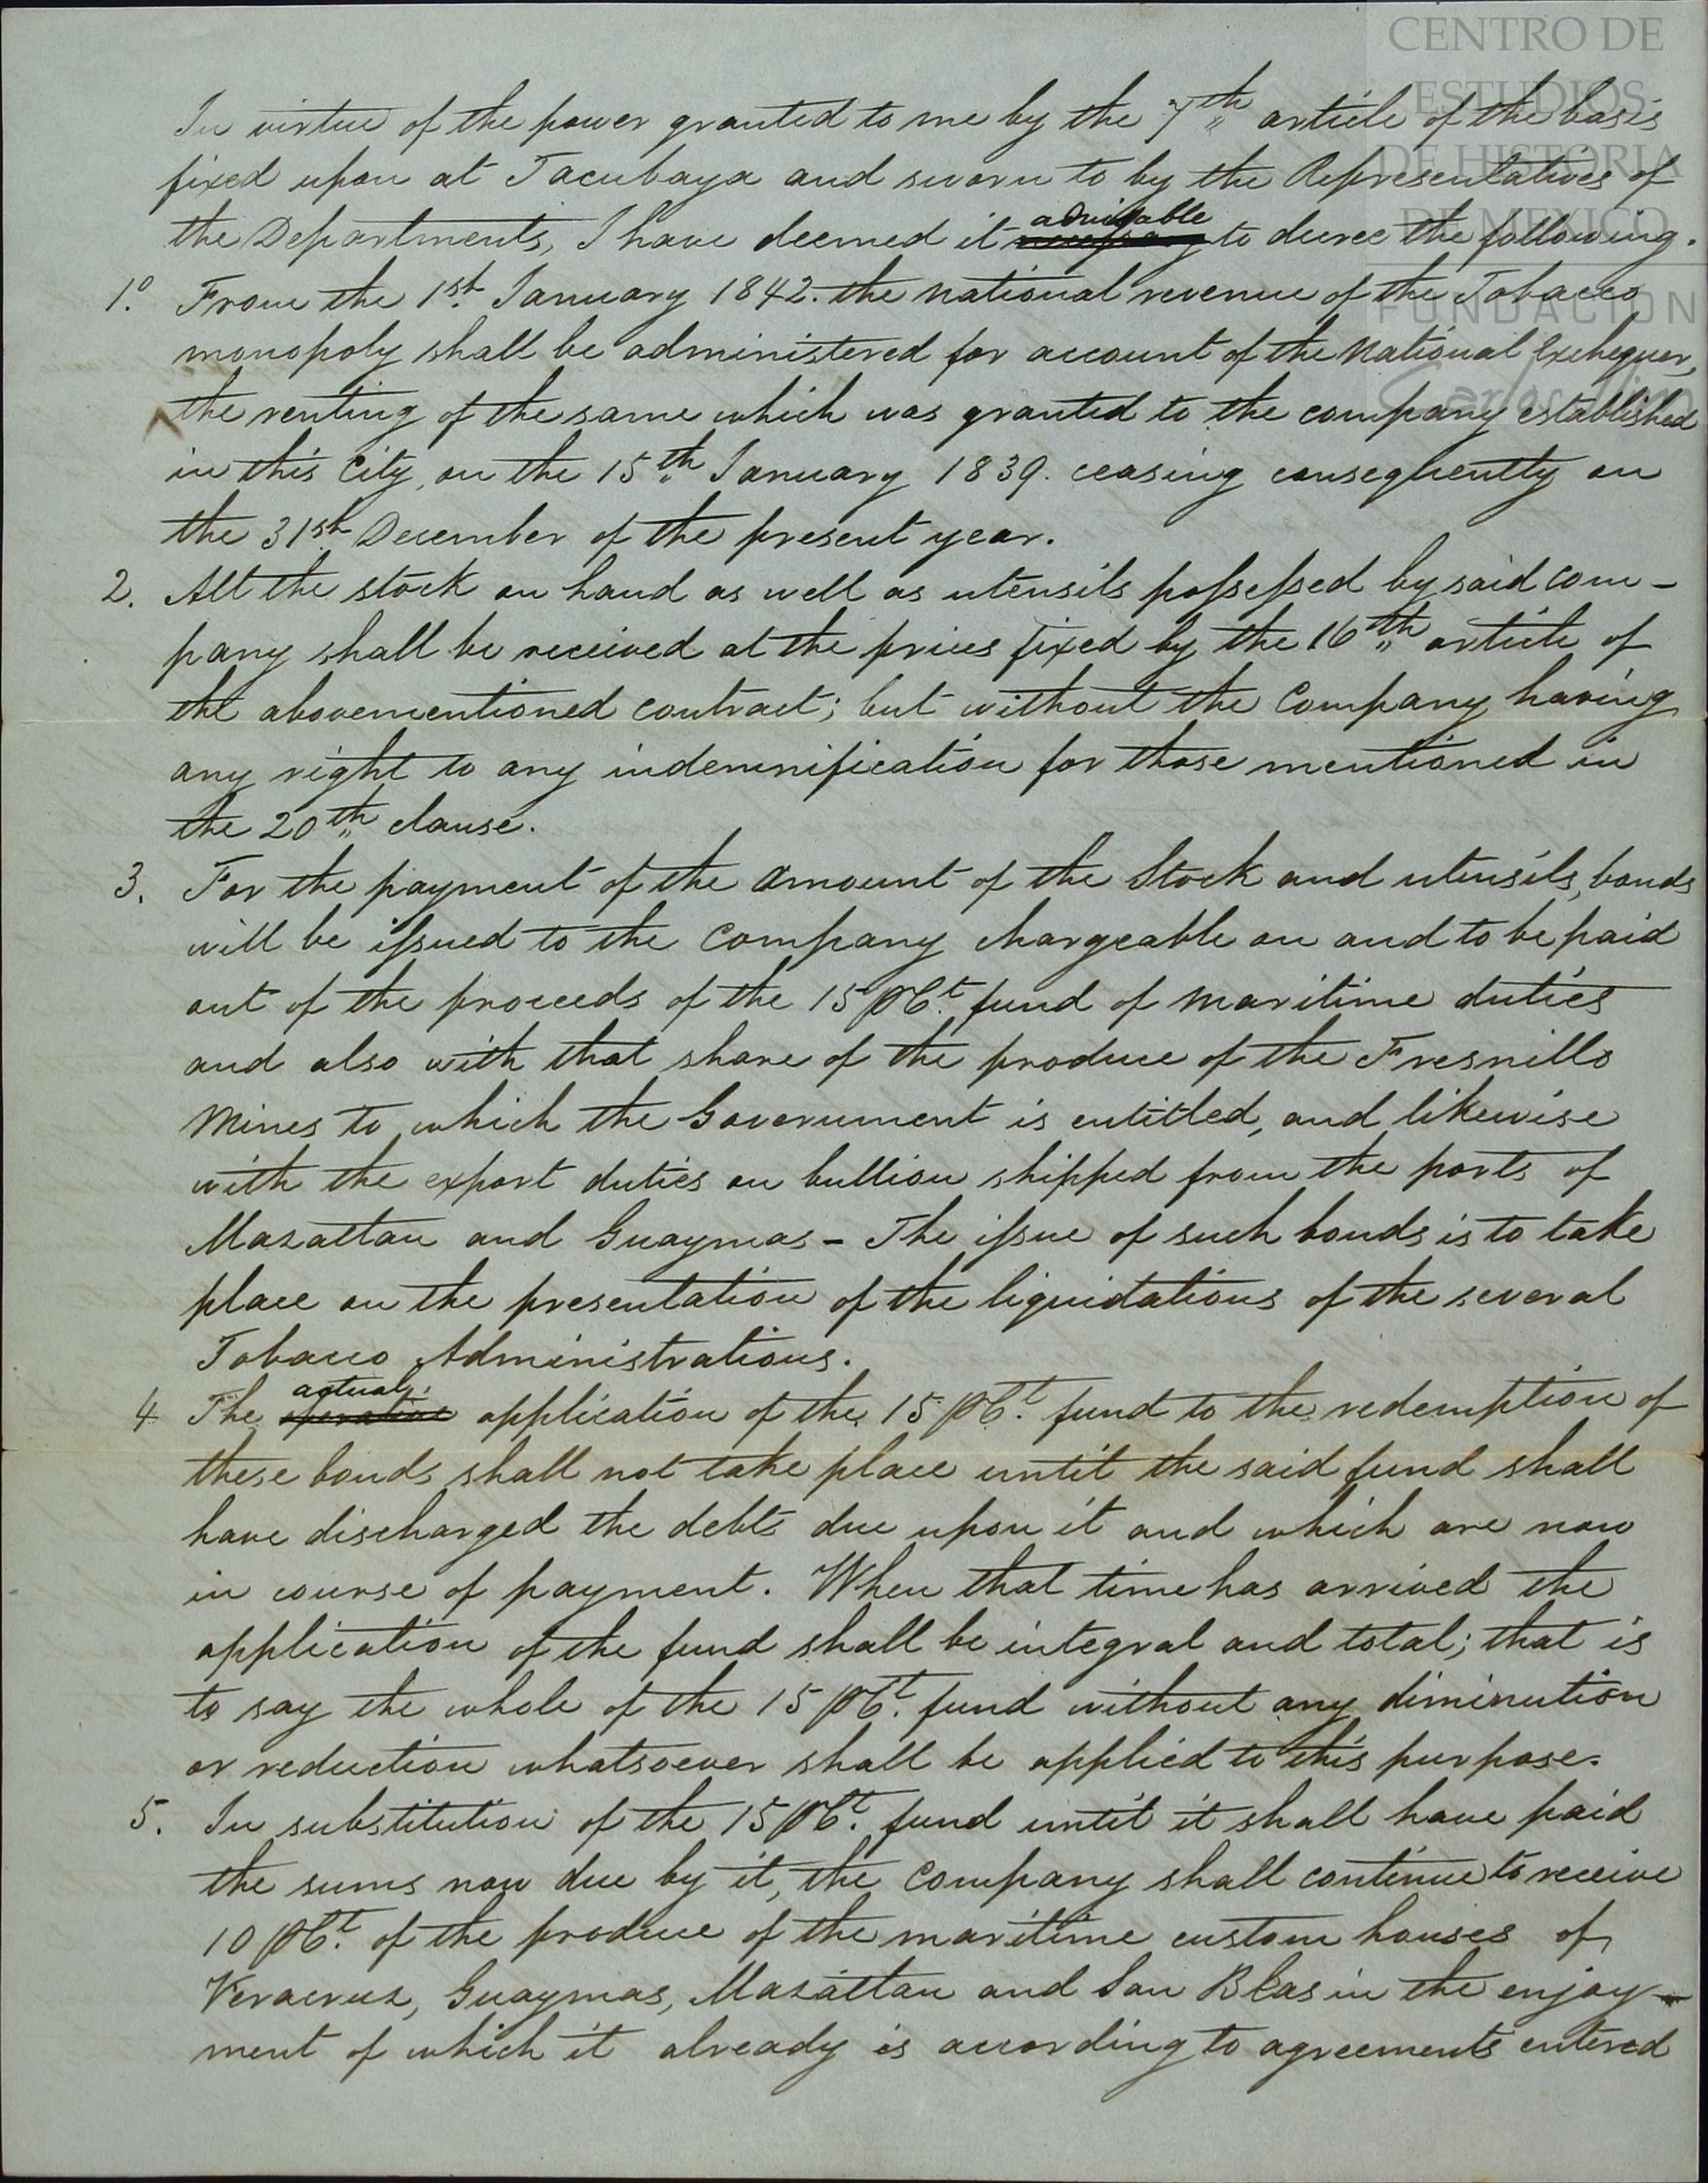 CENTRO DE
ESTUDIOS
DE HISTORIA
DE MEXICO
FUNDACIÓN
Carlos Slim
In virtue of the power granted to me by the 7th article of the basis
fixed upon at Tacubaya and sworn to by the Representatives of
the Departments, I have deemed it necessary advisable to decree the following.
1º. From the 1st. January 1842. the national revenue of the Tobacco
monopoly shall be administered for account of the National Exchequer,
the renting of the same which was granted to the company established
in this City, on the 15th January 1839. ceasing consequently on
the 31st December of the present year.
2. All the stock on hand as well as utensils possessed by said com-
pany shall be received at the prices fixed by the 16th article of
the abovementioned contract; but without the Company having
any right to any indemnification for those mentioned in
the 20th clause.
3. For the payment of the amount of the Stock and utensils, bonds
will be issued to the Company chargeable on and to be paid
out of the proceeds of the 15 pCt. fund of maritime duties
and also with that share of the produce of the Fresnillo
Mines to which the Government is entitled, and likewise
with the export duties on bullion shipped from the ports of
Mazatlan and Guaymas - The issue of such bonds is to take
place on the presentation of the liquidations of the several
Tobacco Administrations.
4. The operative actual application of the 15 pCt. fund to the redemption of
these bonds shall not take place until the said fund shall
have discharged the debts due upon it and which are now
in course of payment. When that time has arrived the
application of the fund shall be integral and total; that is
to say the whole of the 15 pCt. fund without any diminution
or reduction whatsoever shall be applied to this purpose.
5. In substitution of the 15 pCt. fund until it shall have paid
the sums now due by it, the Company shall continue to receive
10 pCt. of the produce of the maritime custom houses of
Veracruz, Guaymas, Mazatlan and San Blas in the enjoy-
ment of which it already is according to agreements entered